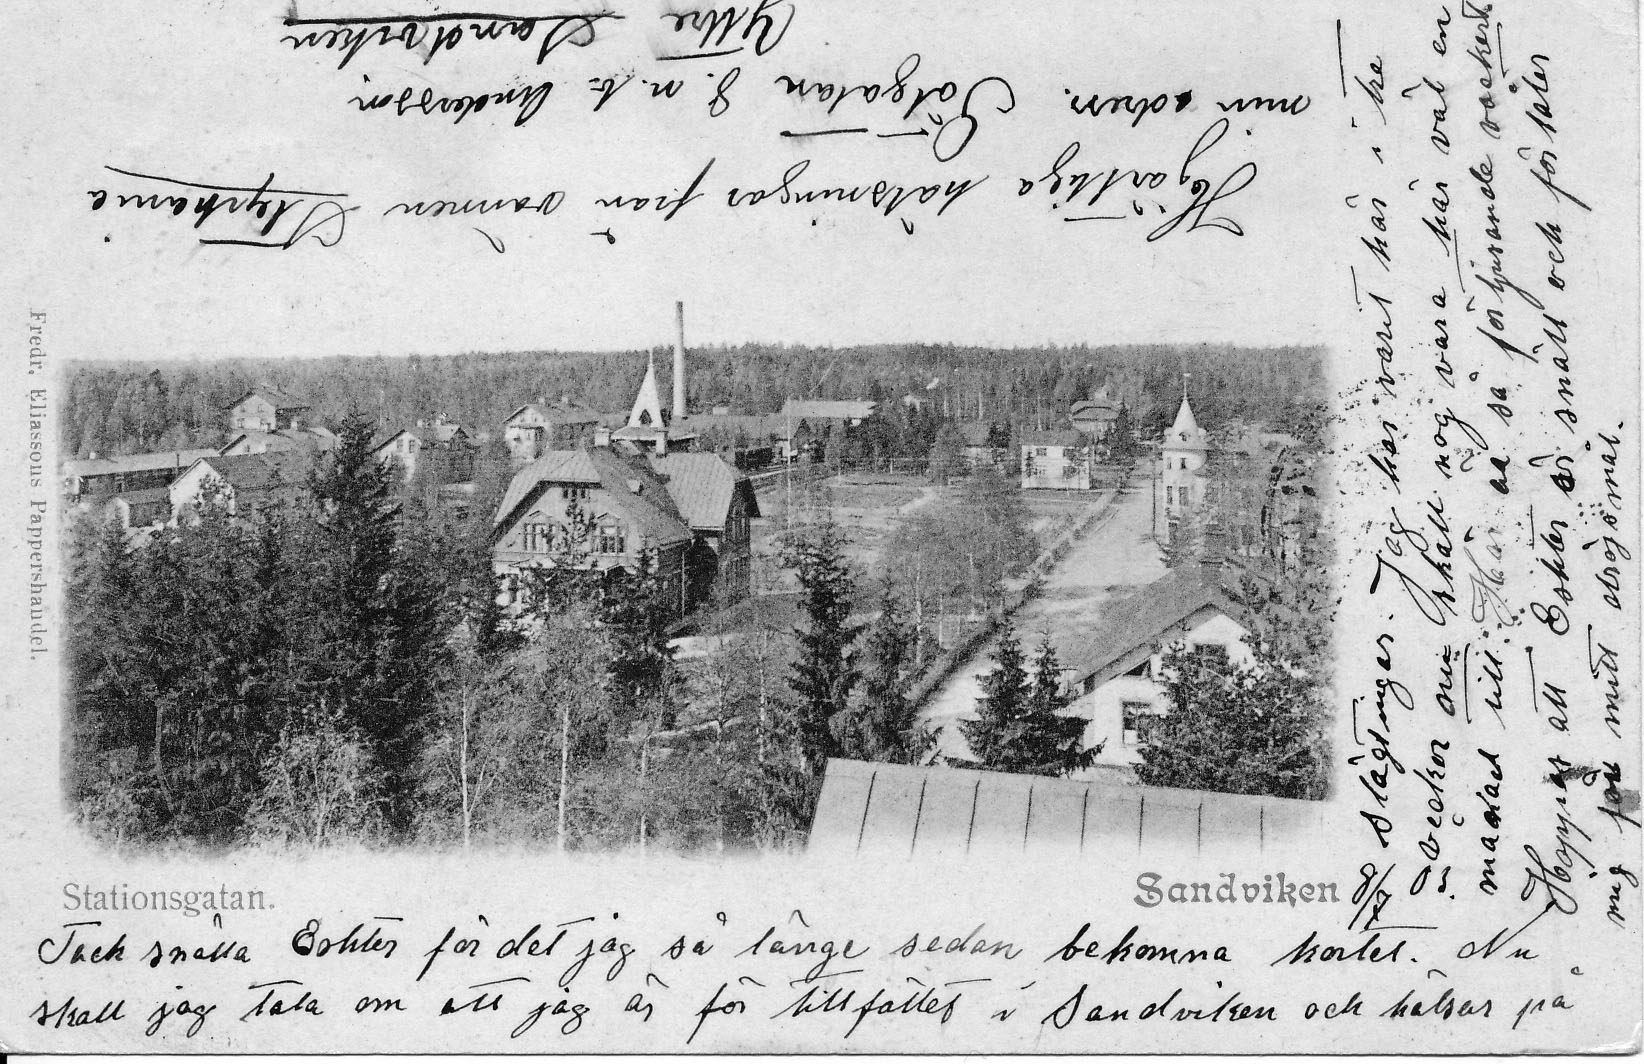 Stationsgatan.
Sandviken
Fredr. Eliassons Pappershandel.
Tack snälla Esster för det jag så länge sedan bekomna kortet. Nu
skall jag tala om att jag är för tillfället i Sandviken och hälsar på
8/7 slägtingar. Jag har varit här i tre
veckor nu. skall nog vara här väl en
månad till. Här är så förtjusande vackert
Hoppas att Esster är snäll och förlåter
mig för mitt dröjsmål.
Hjärtliga hälsningar från vännen Stephanie
min adress. Solgatan J. n. b. Andersson
Yttre Sandviken